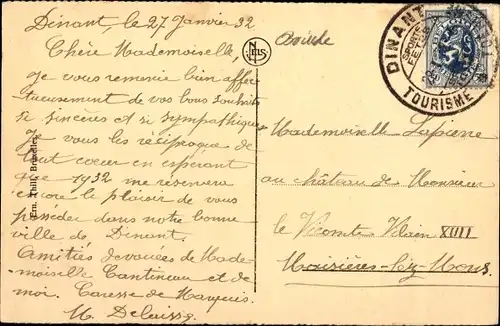 Dinant, le 27 Janvier 32
Chère Mademoiselle,
Je vous remercie bien affec-
tueusement de vos bons souhaits
si sincères et si sympathiques
Je vous les réciproque de
tout coeur en espérant
que 1932 me réservera
encore le plaisir de vous
posséder dans notre bonne
ville de Dinant.
Amitiés dévouées de Made-
moiselle Cantineau et de
moi. Caresse de
M. Delaisse
Ern. Thill, Bruxelles
NELS
DINANT
SPORTS
FETES
TOURISME
Mademoiselle Lapierre
au château de Monsieur
le Vicomte Vilain XIIII
Moisières-lez-Mons